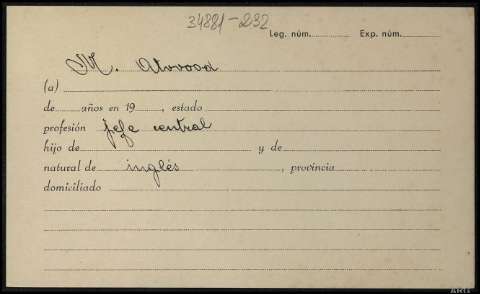 34881-232
Leg. núm. Exp. núm.
M. Atwood
(a)
de años en 19 , estado
profesión jefe central
hijo de y de
natural de inglés , provincia
domiciliado